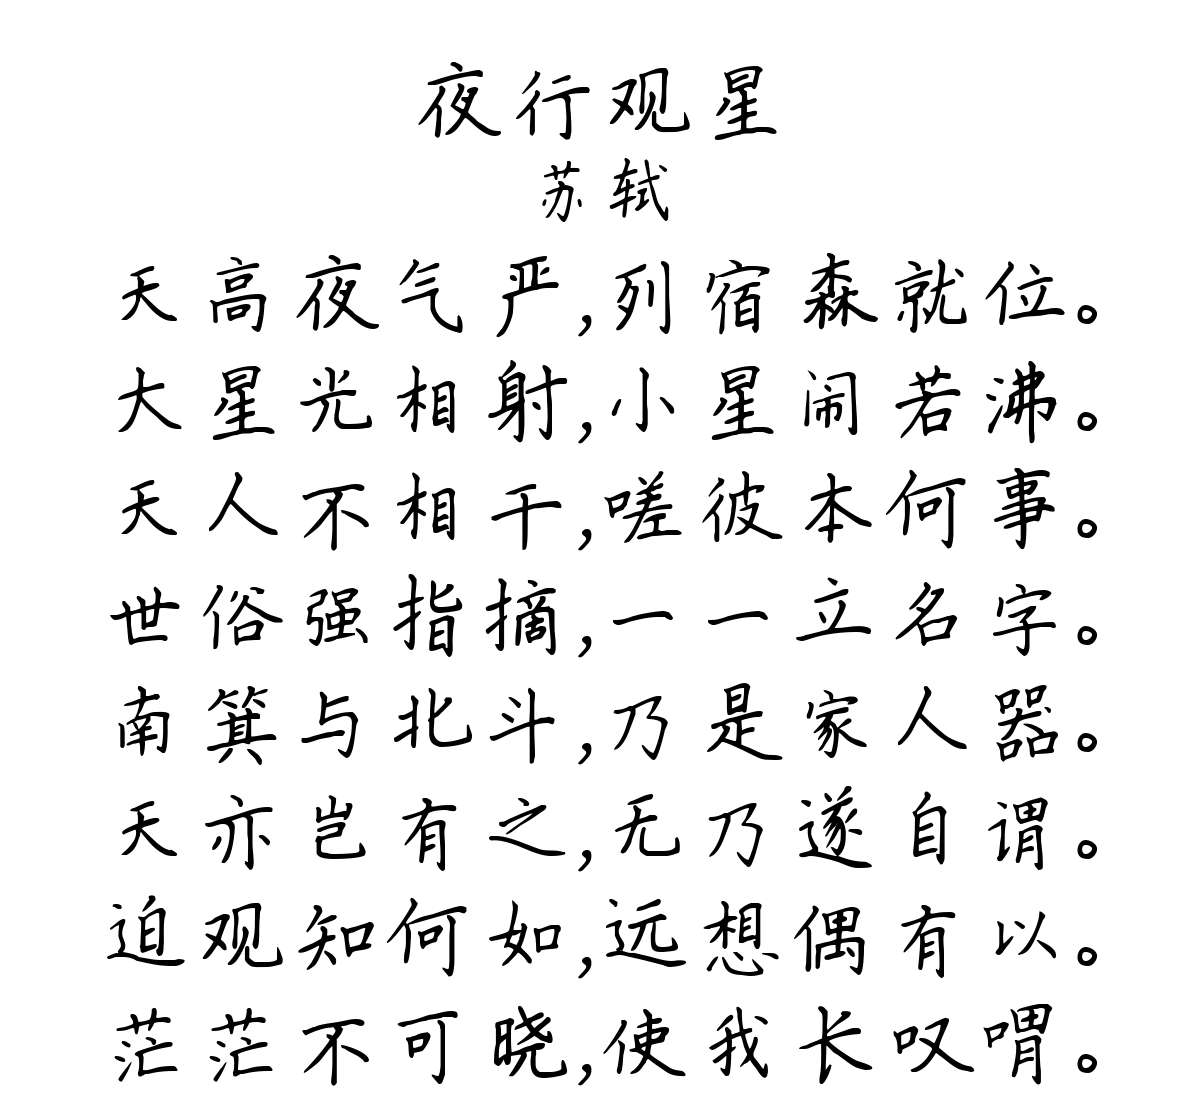 夜行观星
苏轼
天高夜气严,列宿森就位。
大星光相射,小星闹若沸。
天人不相干,嗟彼本何事。
世俗强指摘,一一立名字。
南箕与北斗,乃是家人器。
天亦岂有之,无乃遂自谓。
迫观知何如,远想偶有以。
茫茫不可晓,使我长叹喟。